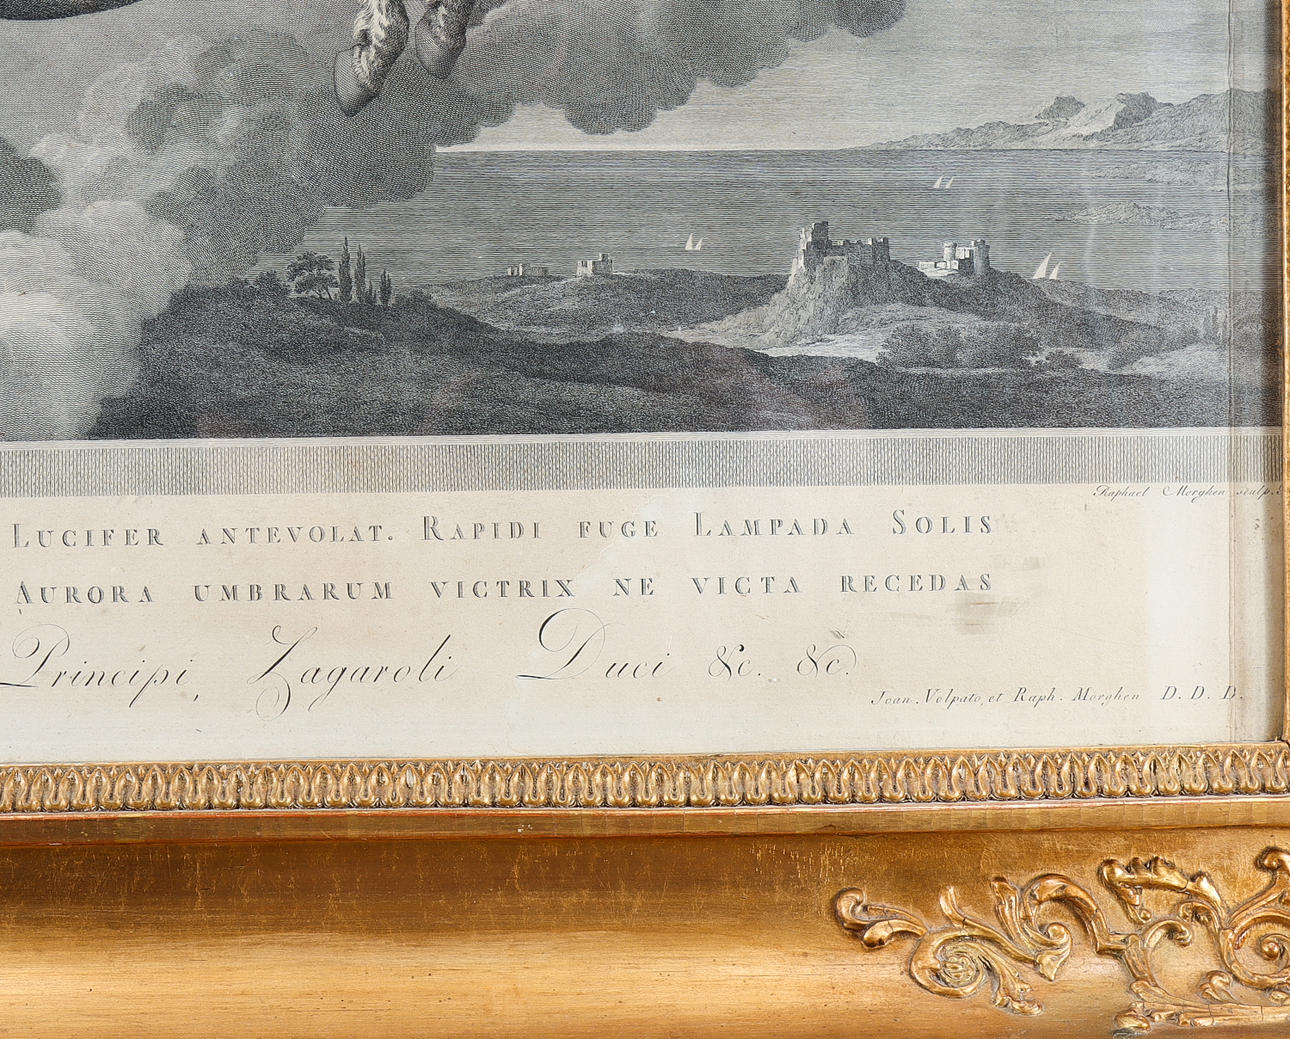 Raphael Morghen sculp.
LUCIFER ANTEVOLAT. RAPIDI FUGE LAMPADA SOLIS
AURORA UMBRARUM VICTRIX NE VICTA RECEDAS
Principi, Zagaroli Duci &c. &c.
Joan. Volpato, et Raph. Morghen D. D. D.